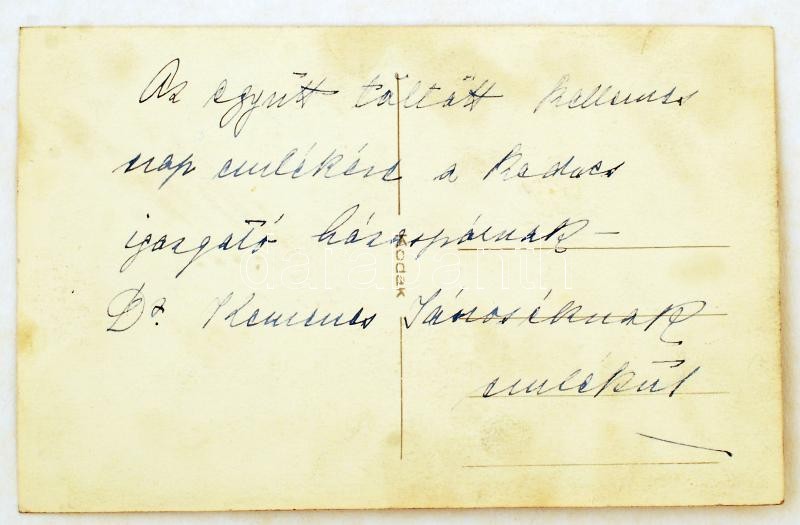 Az együtt töltött kellemes
nap emlékére a kedves
igazgató házaspárnak –
Dr. Kemenes Jánoséknak
emlékül
Kodak
darabanth